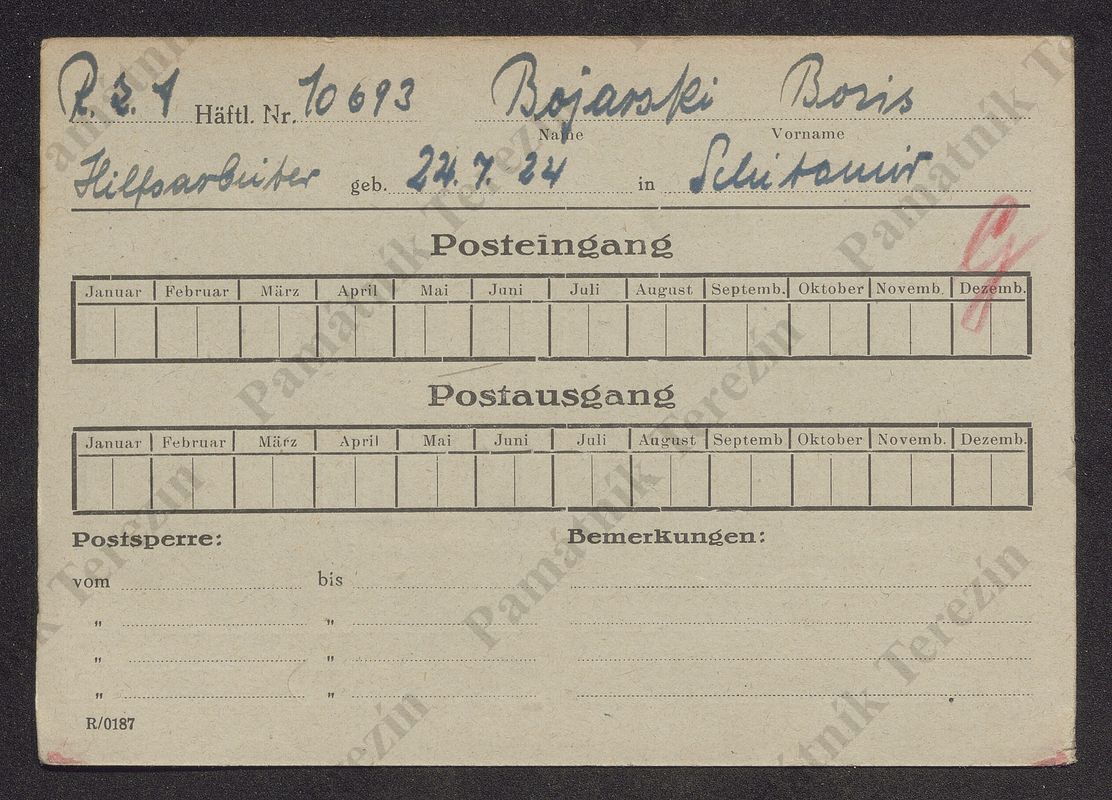 R. Z. 1 Häftl. Nr. 10693 Bojarski Boris
Name Vorname
Hilfsarbeiter geb. 24. 7. 24 in Schitomir
Posteingang
Januar Februar März April Mai Juni Juli August Septemb. Oktober Novemb. Dezemb.
Postausgang
Januar Februar März April Mai Juni Juli August Septemb Oktober Novemb. Dezemb.
Postsperre: Bemerkungen:
vom bis
" "
" "
" "
R/0187
Památník Terezín